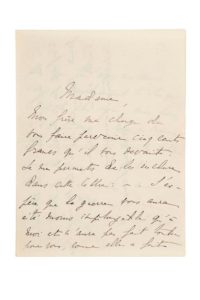 Madame,
Mon frère me charge de
vous faire parvenir cinq cents
francs qu'il vous devait.
Je me permets de les inclure
dans cette lettre. J'es-
père que la guerre vous aura
été moins impitoyable qu'à
moi et n'aura pas fait tomber
comme elle a fait